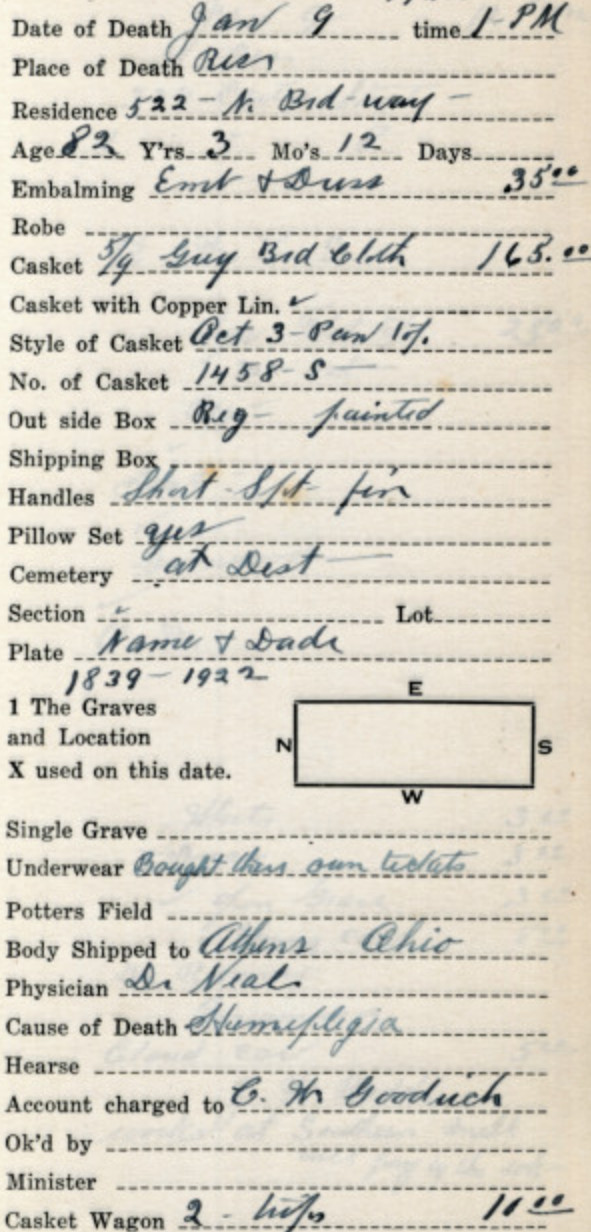 Date of Death Jan 9 time 1 PM
Place of Death Res
Residence 522 - N. Brd-way -
Age 82 Y'rs 3 Mo's 12 Days
Embalming Emb & Dress 35.00
Robe
Casket 5/9 Grey Brd Cloth 165.00
Casket with Copper Lin.
Style of Casket Oct 3-Pan
No. of Casket 1458 S
Out side Box Reg - painted
Shipping Box
Handles Short
Pillow Set yes
Cemetery at Dest
Section Lot
Plate Name & Dade
1839 - 1922
1 The Graves
and Location
X used on this date.
E
N S
W
Single Grave
Underwear Bought own tickets
Potters Field
Body Shipped to Athens Ohio
Physician Dr Neal
Cause of Death Hemeplegia
Hearse
Account charged to C. Goodrich
Ok'd by
Minister
Casket Wagon 2 - trips 11.00